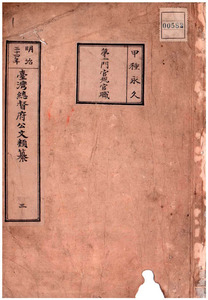 00582
甲種永久
第一門官規官職
明治
三十四年
臺灣總督府公文類纂
三